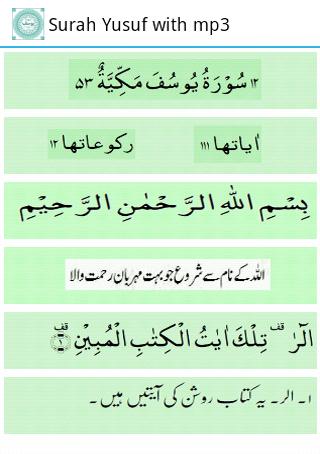 Surah Yusuf with mp3
١٢ سُوْرَةُ يُوسُفَ مَكِّيَّةٌ ٥٣
اٰياتها ١١١ ركوعاتها ١٢
بِسْمِ اللّٰهِ الرَّحْمٰنِ الرَّحِيْمِ
اللہ کے نام سے شروع جو بہت مہربان رحمت والا
الٓرٰ ۟قف تِلْكَ اٰيٰتُ الْكِتٰبِ الْمُبِيْنِ ۟قف ﴿۱﴾
۱۔ الر۔ یہ کتاب روشن کی آیتیں ہیں ۔